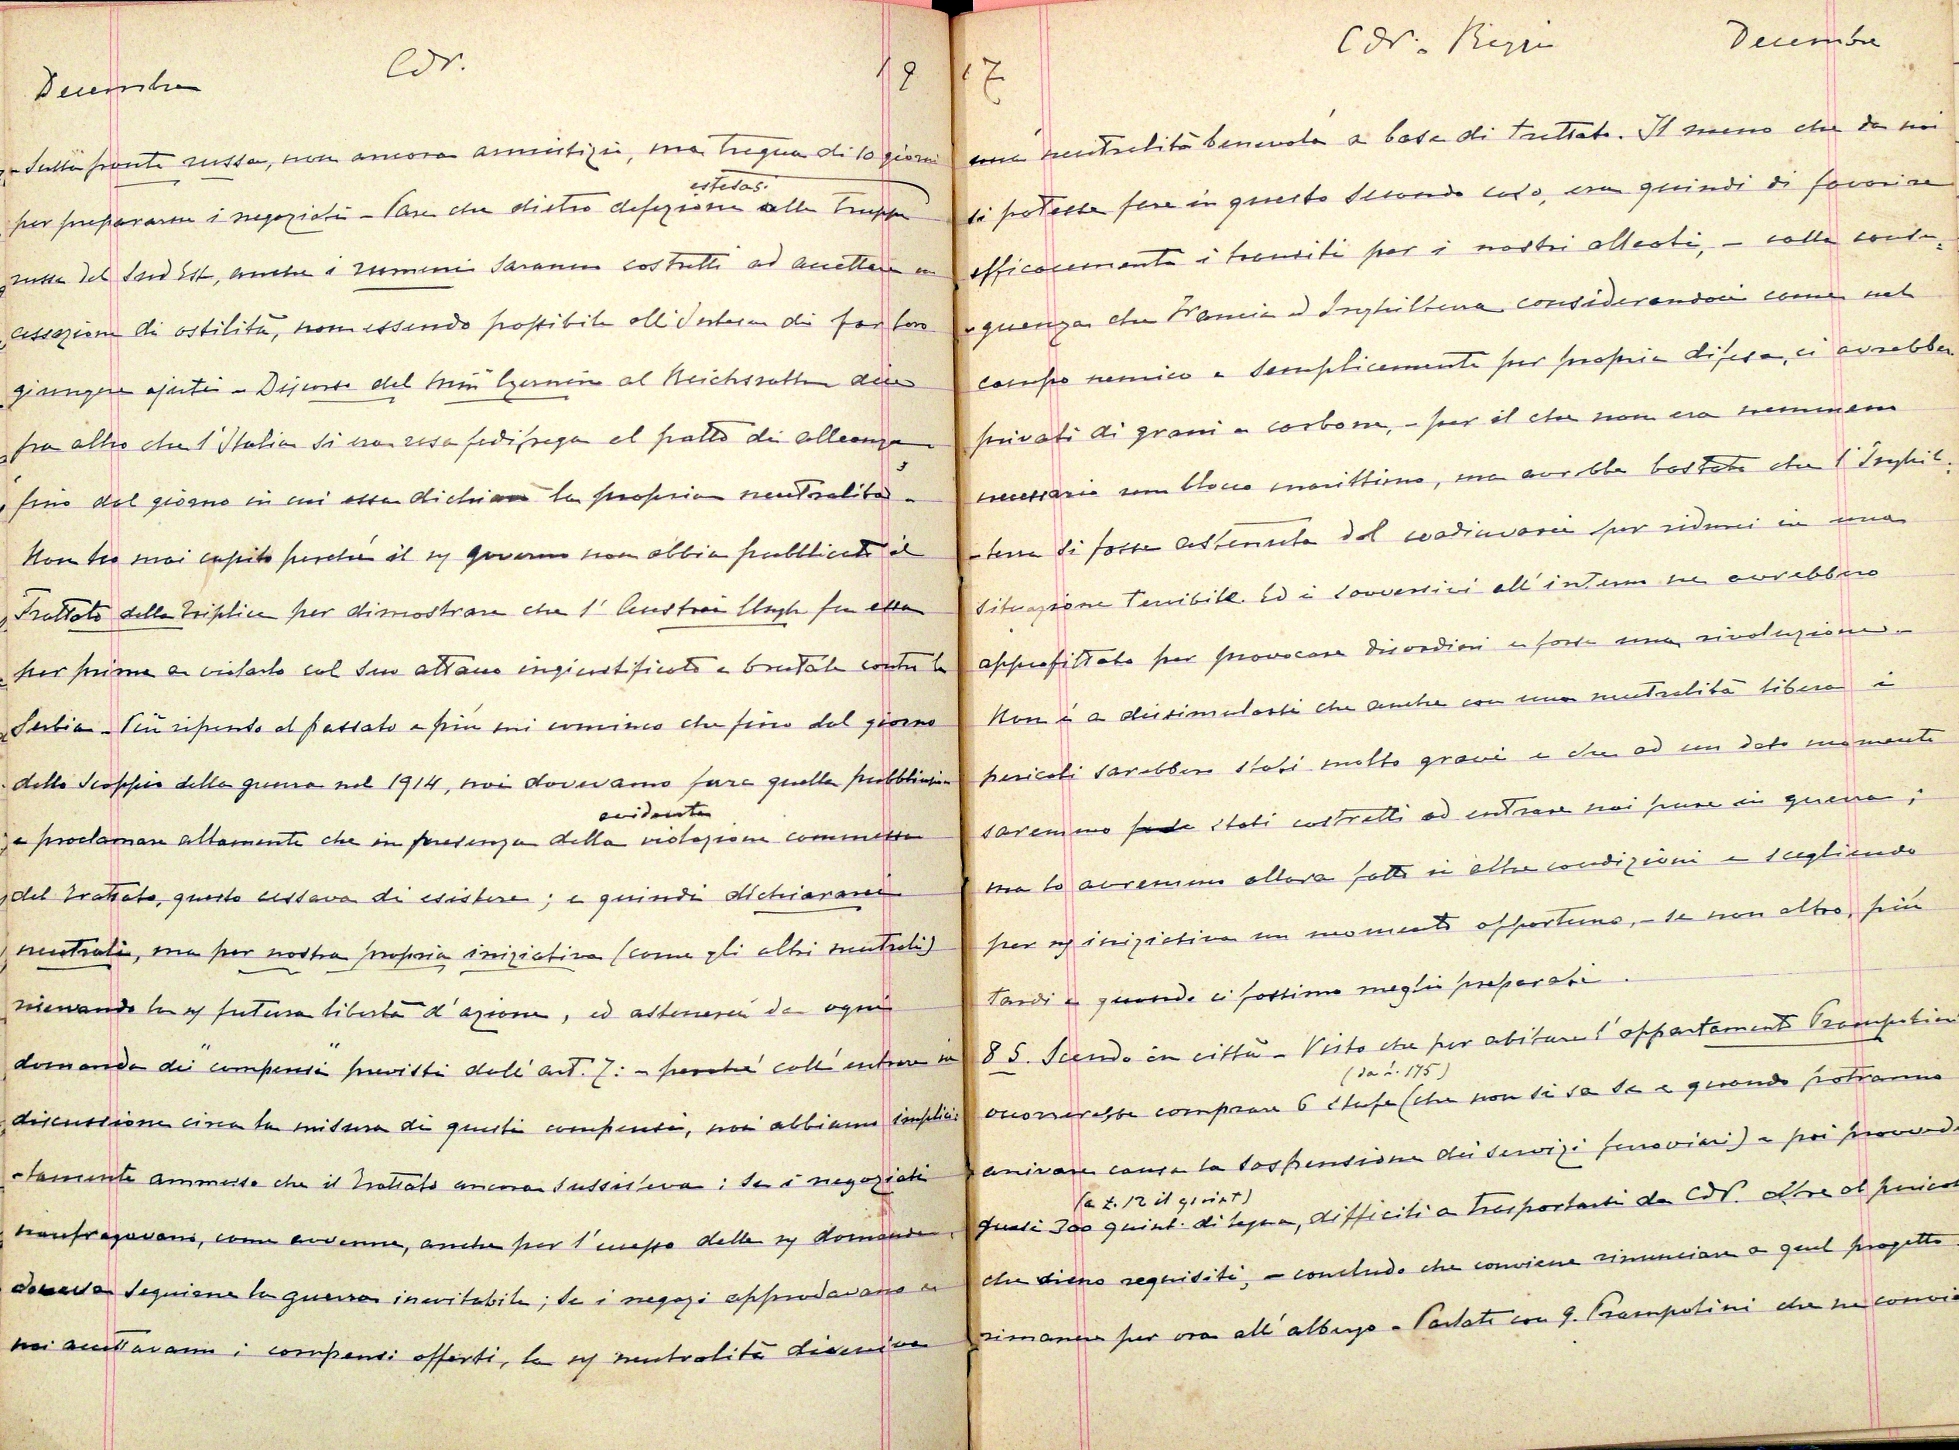 Decembre
Cdr.
19
- Sulla fronte russa, non ancora armistizio, ma tregua di 10 giorni
estesasi
per prepararne i negoziati - Pare che dietro defezione alle truppe
russe del Sud Est, anche i rumeni saranno costretti ad accettare una
cessazione di ostilità, non essendo possibile all'Intesa di far loro
giungere ajuti - Discorso del Min Czernin al Reichsrath dice
fra altro che l'Italia si era resa fedifraga al patto di alleanza
fino dal giorno in cui essa dichiarò la propria neutralità -
Non ho mai capito perché il nº governo non abbia pubblicato il
Trattato della Triplice per dimostrare che l'Austria Ungh fu essa
per prima a violarlo col suo attacco ingiustificato e brutale contro la
Serbia - Più ripenso al passato e più mi convinco che fino dal giorno
dello scoppio della guerra nel 1914, noi dovevamo fare quella pubblicazion
evidente
e proclamare altamente che in presenza della violazione commessa
del trattato, questo cessava di esistere; e quindi dichiararci
neutrali, ma per nostra propria iniziativa (come gli altri neutrali)
riservando la nª futura libertà d'azione, ed astenerci da ogni
domanda dei "compensi" previsti dall'art. 7: - perché coll'entrare in
discussione circa la misura di questi compensi, noi abbiamo implici-
-tamente ammesso che il Trattato ancora sussisteva: se i negoziati
naufragavano, come avvenne, anche per l'eccesso delle nº domande,
doveva seguirne la guerra inevitabile; se i negozi approdavano e
noi accettavamo i compensi offerti, la nª neutralità diveniva
17
Cdr. - Reggio
Decembre
una "neutralità benevola" a base di trattato. Il meno che da noi
si potesse fare in questo secondo caso, era quindi di favorire
efficacemente i transiti per i nostri alleati, - colla conse-
-guenza che Francia ed Inghilterra considerandoci come nel
campo nemico e semplicemente per propria difesa, ci avrebber
privati di grani e carbone, - per il che non era nemmeno
necessario un blocco marittimo, ma avrebbe bastato che l'Inghil-
-terra si fosse astenuta dal coadiuvarci per ridurci in una
situazione terribile. Ed i sovversivi all'interno ne avrebbero
approfittato per provocare disordini e forse una rivoluzione -
Non è a dissimularsi che anche con una neutralità libera i
pericoli sarebbero stati molto gravi e che ad un dato momento
saremmo stati costretti ad entrare noi pure in guerra;
ma lo avremmo allora fatto in altre condizioni e scegliendo
per nª iniziativa un momento opportuno, - se non altro, più
tardi e quando ci fossimo meglio preparati.
8 S. Scendo in città - Visto che per abitare l'appartamento Prampolini
(da £. 175)
occorrerebbe comprare 6 stufe (che non si sa se e quando potranno
arrivare causa la sospensione dei servizi ferroviari) e poi provvede
(a £. 12 il quint)
quasi 300 quint. di legna, difficili a trasportarsi da Cdr. oltre al pericol
che sieno requisiti, - concludo che conviene rinunciare a quel progetto
rimanere per ora all'albergo - Parlato con g. Prampolini che ne convie